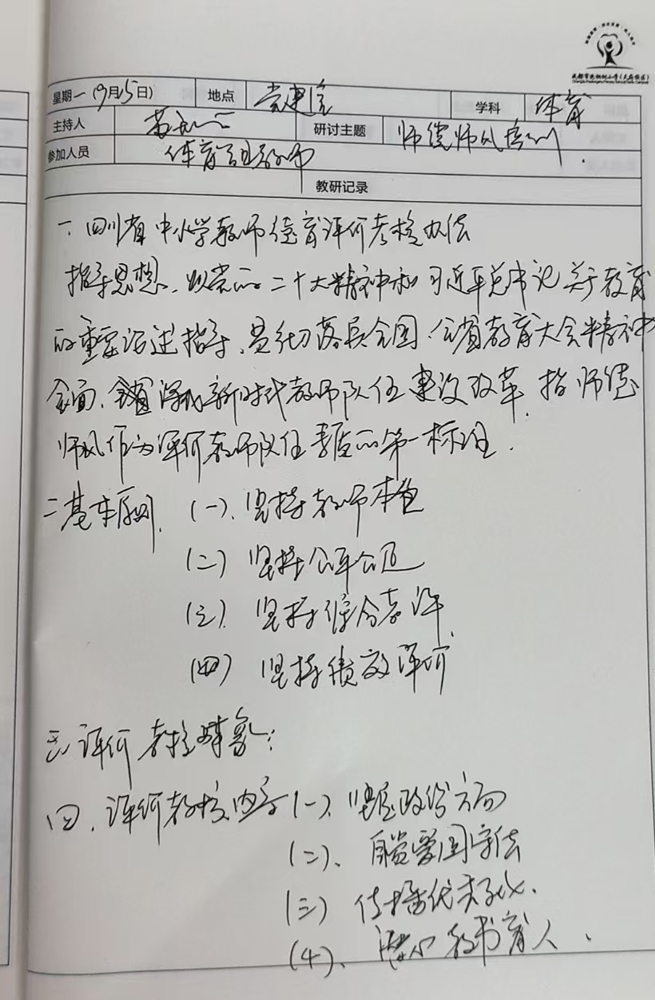 星期一（9月15日） 地点 党建室 学科 体育
主持人 研讨主题 师德师风培训.
参加人员 体育组教师
教研记录
一、四川省中小学教师德育评价考核办法
指导思想、以党的二十大精神和习近平总书记关于教育
的重要论述指导、贯彻落实全国、全省教育大会精神
全面、深化新时代教师队伍建设改革、指师德
师风作为评价教师队伍素质的第一标准.
二基本原则、(一)、坚持教师本色
(二) 坚持公平公正
(三) 坚持综合考评
(四) 坚持绩效评价
三、评价考核对象:
四、评价考核内容(一)、坚定政治方向
(二)、自觉爱国守法
(三) 传播优秀文化.
(4)、潜心教书育人、